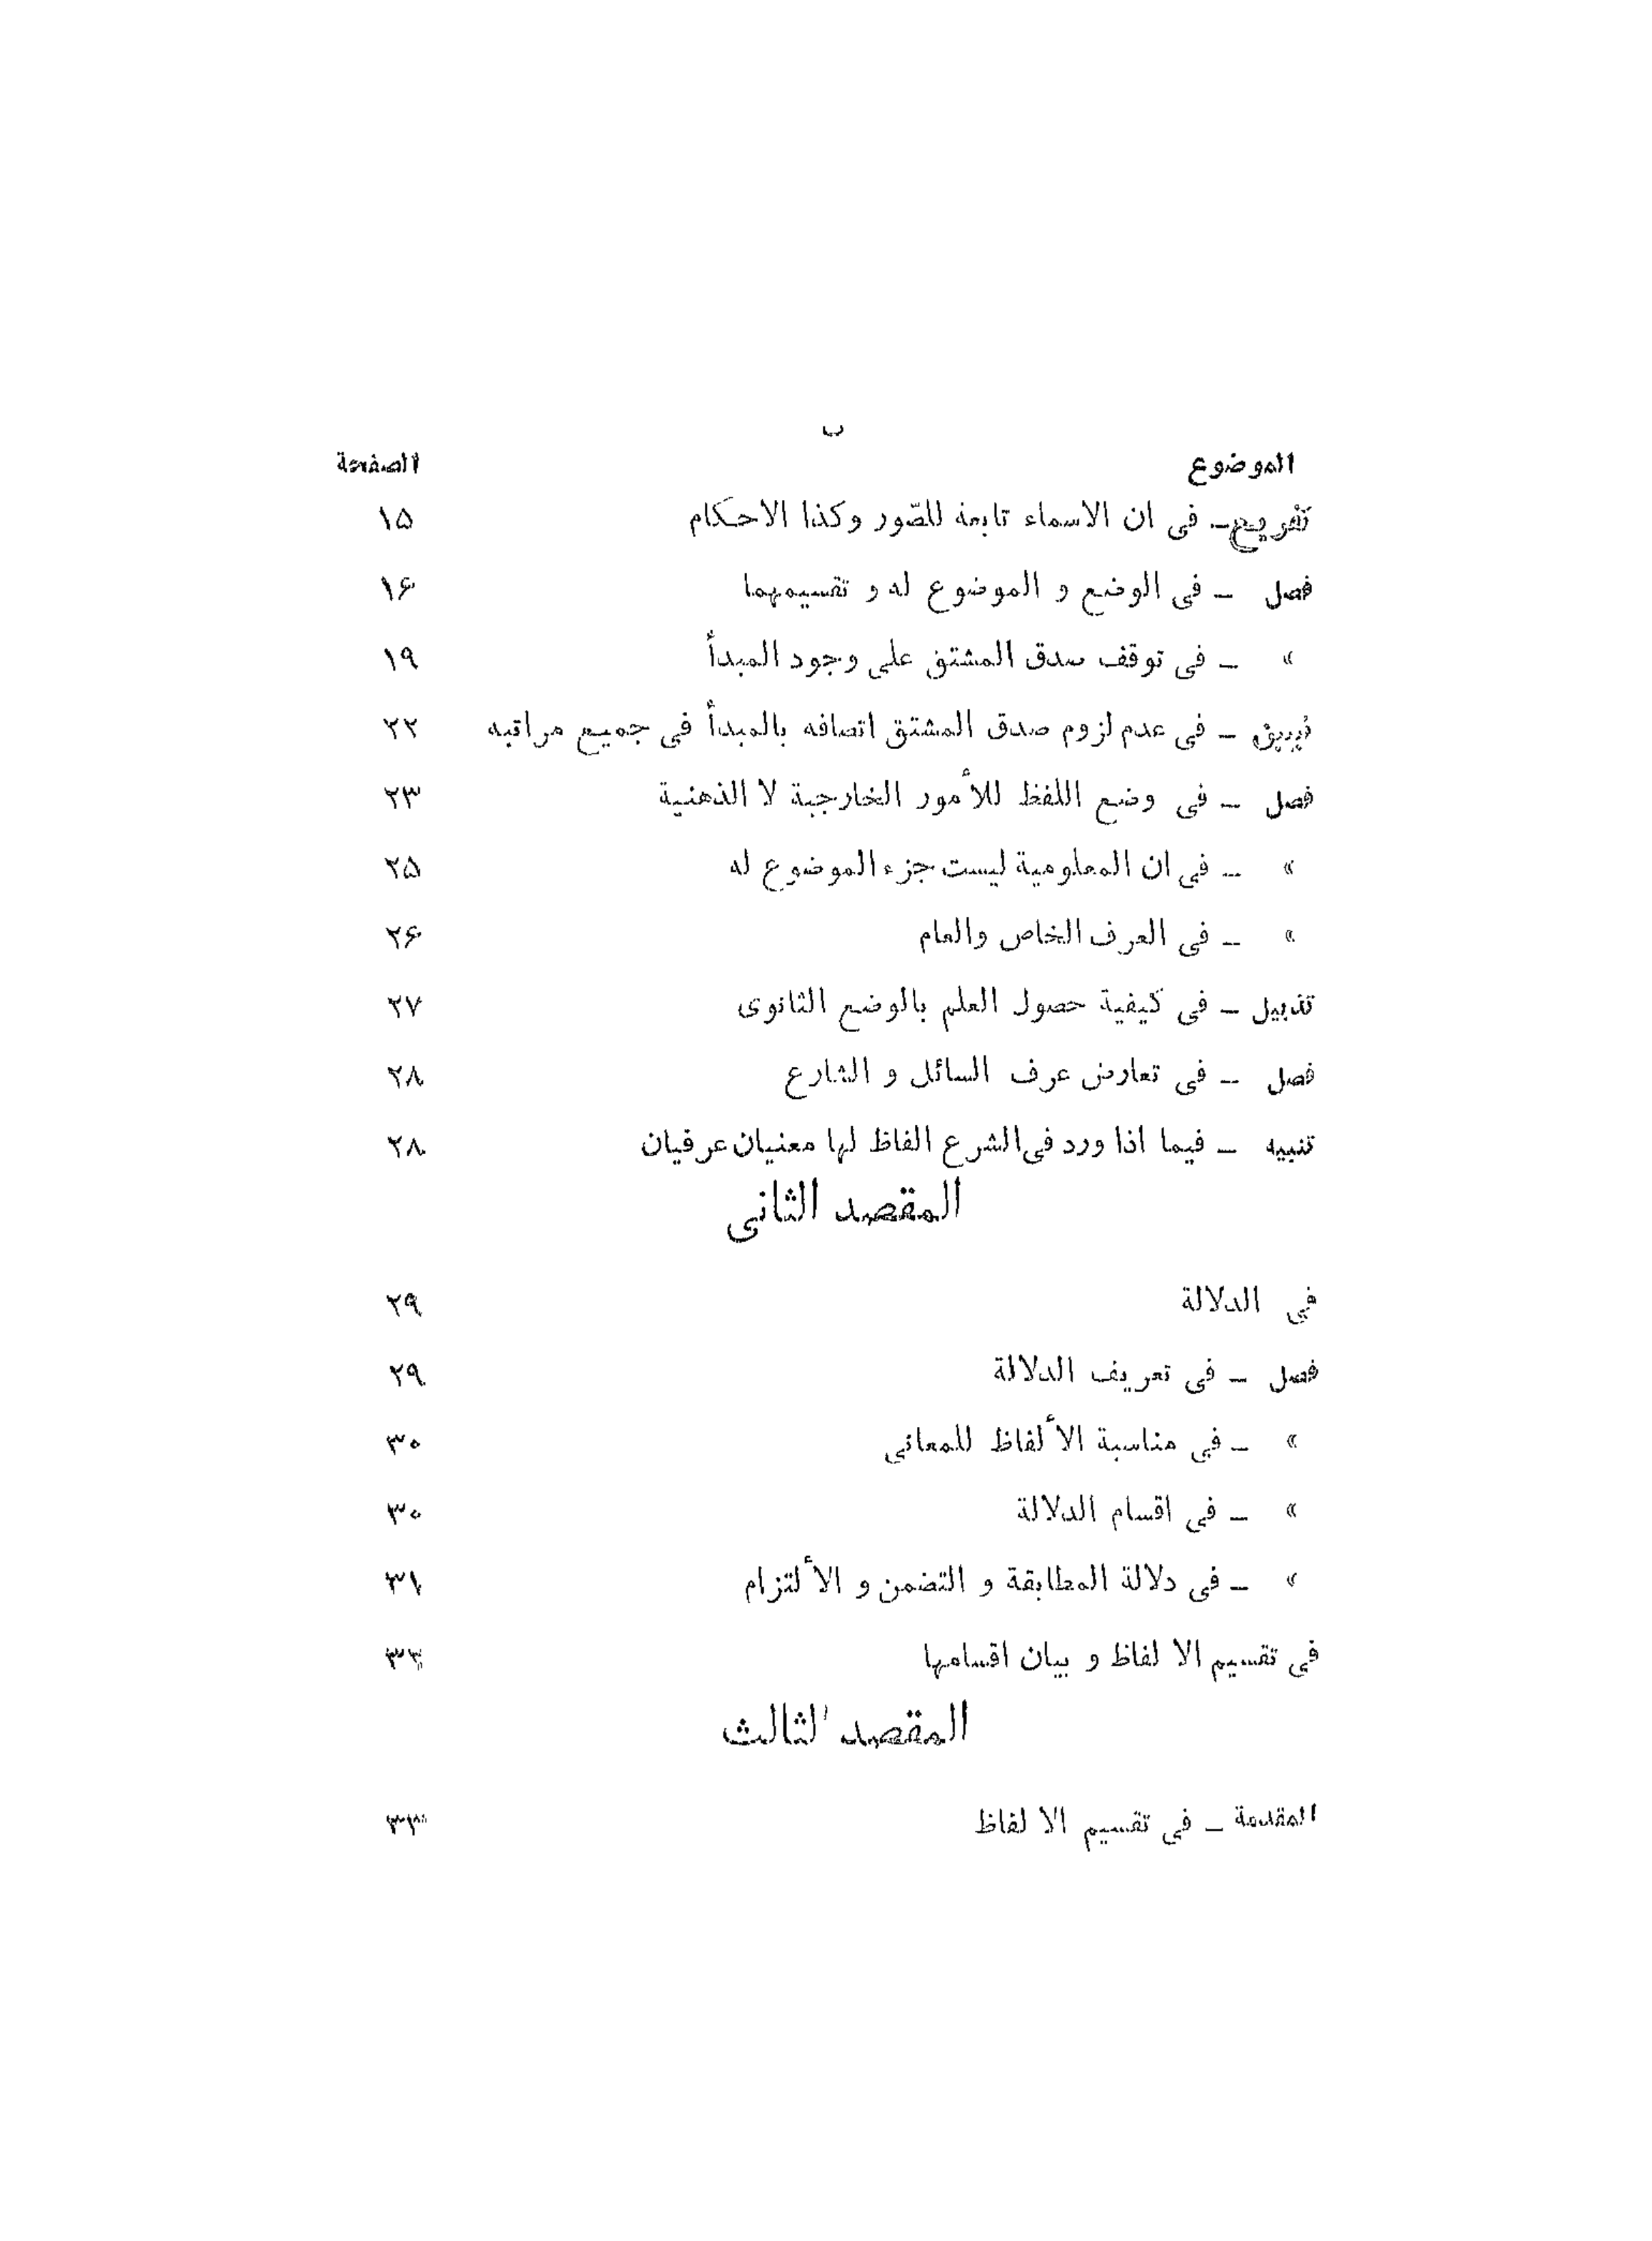 ب
الموضوع الصفحة
تفريع ـ فى ان الاسماء تابعة للصّور وكذا الاحكام ۱۵
فصل ـ فى الوضع و الموضوع له و تقسيمهما ۱۶
» ـ فى توقف صدق المشتق على وجود المبدأ ۱۹
ـ فى عدم لزوم صدق المشتق اتصافه بالمبدأ فى جميع مراتبه ۲۲
فصل ـ فى وضع اللفظ للأمور الخارجية لا الذهنية ۲۳
» ـ فى ان المعلومية ليست جزء الموضوع له ۲۵
» ـ فى العرف الخاص والعام ۲۶
تذييل ـ فى كيفية حصول العلم بالوضع الثانوى ۲۷
فصل ـ فى تعارض عرف السائل و الشارع ۲۸
تنبيه ـ فيما اذا ورد فى الشرع الفاظ لها معنيان عرفيان ۲۸
المقصد الثانى
فى الدلالة ۲۹
فصل ـ فى تعريف الدلالة ۲۹
» ـ فى مناسبة الألفاظ للمعانى ۳۰
» ـ فى اقسام الدلالة ۳۰
» ـ فى دلالة المطابقة و التضمن و الألتزام ۳۱
فى تقسيم الا لفاظ و بيان اقسامها ۳۳
المقصد الثالث
المقدمة ـ فى تقسيم الا لفاظ ۳۳